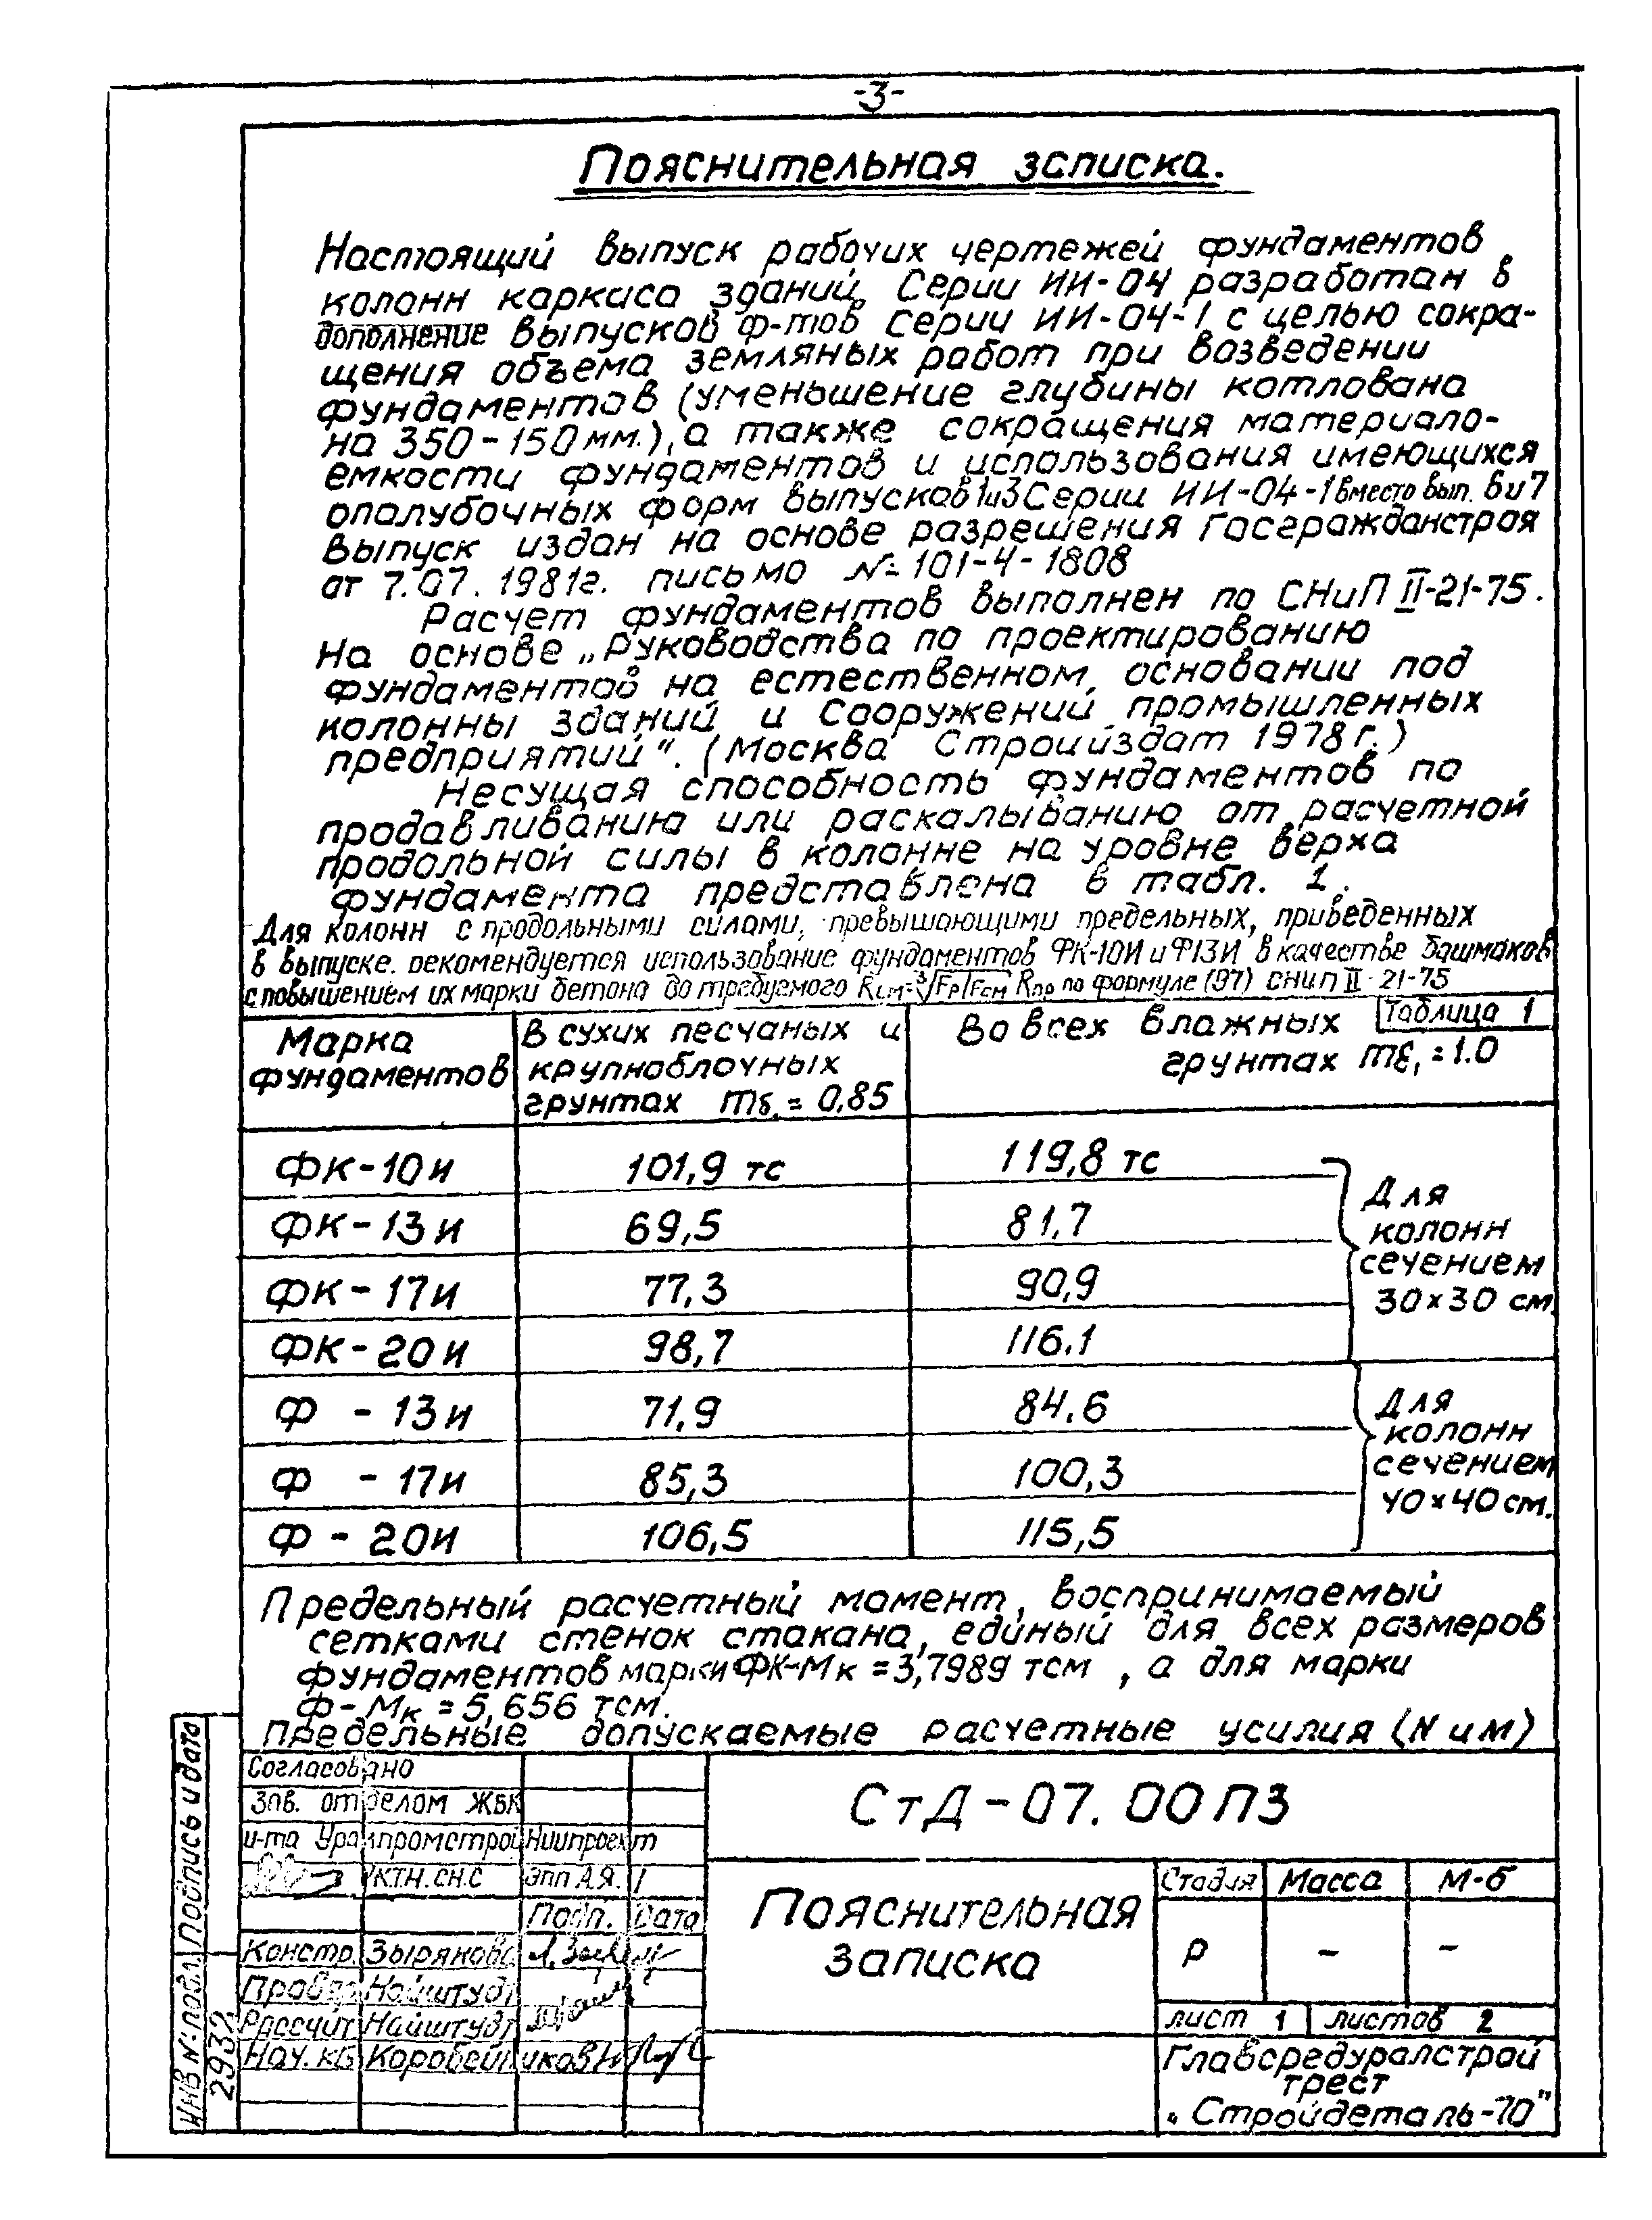 -3-
Пояснительная записка.
Настоящий выпуск рабочих чертежей фундаментов
колонн каркаса зданий Серии ИИ-04 разработан в
дополнение выпусков ф-тов Серии ИИ-04-1 с целью сокра-
щения объема земляных работ при возведении
фундаментов (уменьшение глубины котлована
на 350-150мм.), а также сокращения материало-
емкости фундаментов и использования имеющихся
опалубочных форм выпусков 1и3 Серии ИИ-04-1 вместо вып. 6и7
Выпуск издан на основе разрешения Госгражданстроя
от 7.07.1981г. письмо № 101-4-1808
Расчет фундаментов выполнен по СНиП II-21-75.
На основе „Руководства по проектированию
фундаментов на естественном основании под
колонны зданий и Сооружений промышленных
предприятий". (Москва Стройиздат 1978г.)
Несущая способность фундаментов по
продавливанию или раскалыванию от расчетной
продольной силы в колонне на уровне верха
фундамента представлена в табл. 1.
Для колонн с продольными силами, превышающими предельных, приведенных
в выпуске. рекомендуется использование фундаментов ФК-10И и Ф13И в качестве башмаков
с повышением их марки бетона до требуемого Rсм=³√Fр/Fсм Rпр по формуле (97) СНиП II-21-75
Таблица 1
Марка фундаментов
В сухих песчаных и крупноблочных грунтах mб₁ = 0,85
Во всех влажных грунтах mб₁ = 1.0
ФК-10и 101,9 тс 119,8 тс
ФК-13и 69,5 81,7
ФК-17и 77,3 90,9
ФК-20и 98,7 116.1
Для
колонн
сечением
30×30 см.
Ф -13и 71,9 84.6
Ф -17и 85,3 100,3
Ф -20и 106,5 115,5
Для
колонн
сечением
40×40см.
Предельный расчетный момент, воспринимаемый
сетками стенок стакана, единый для всех размеров
фундаментов марки ФК-Мк = 3,7989 тсм , а для марки
ф-Мк = 5,656 тсм.
Предельные допускаемые расчетные усилия (N и М)
Согласовано
Зав. отделом ЖБК
и-та УралпромстройНиипроект
КТН.СН.С Эпп А.Я.
Подп. Дата
Констр. Зырянова
Провер Найштудт
Рассчит Найштудт
Нач. КБ Коробейников
СтД-07.00ПЗ
Пояснительная
записка
Стадия Масса М-б
Р - -
лист 1 листов 2
Главсредуралстрой
трест
„Стройдеталь-70"
Подпись и дата
Инв № подл.
2932